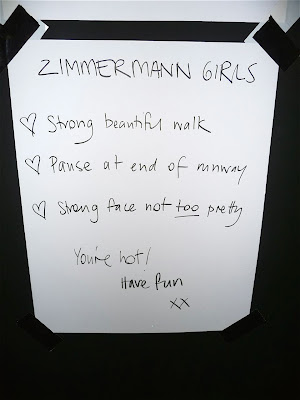 ZIMMERMANN GIRLS
♡ Strong beautiful walk
♡ Pause at end of runway
♡ Strong face not too pretty
You're hot!
Have fun
xx